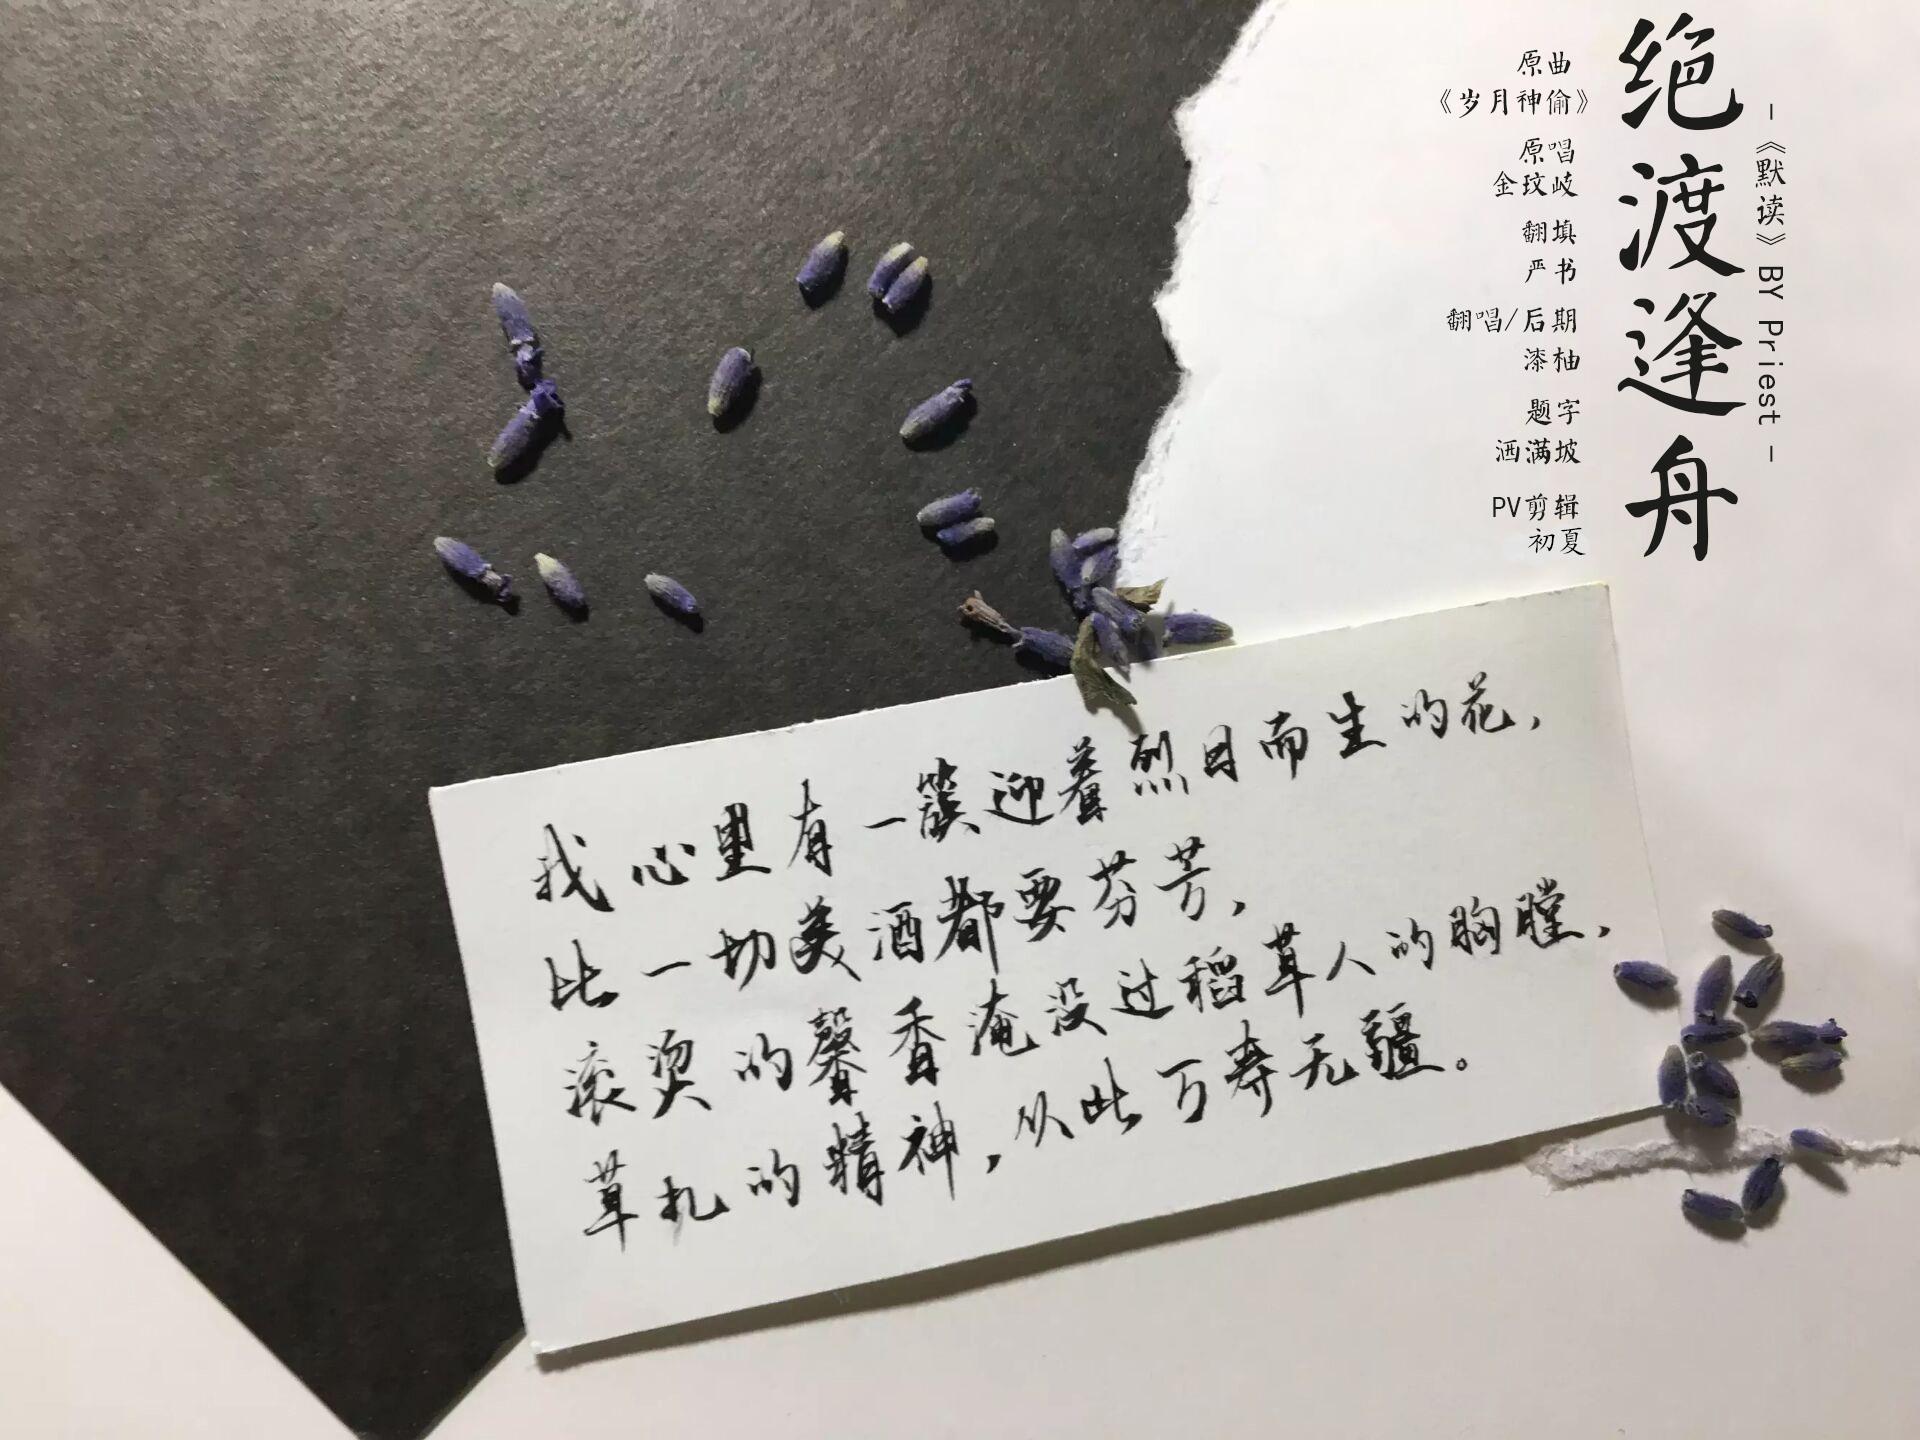 绝渡逢舟
-《默读》BY Priest-
原曲
《岁月神偷》
原唱
金玟岐
翻填
严书
翻唱/后期
漆柚
题字
洒满坡
PV剪辑
初夏
我心里有一簇迎着烈日而生的花，
比一切美酒都要芬芳，
滚烫的馨香淹没过稻草人的胸膛，
草扎的精神，从此万寿无疆。